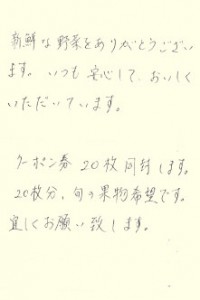 新鮮な野菜をありがとうござい
ます。いつも安心して、おいしく
いただいています。
クーポン券20枚同封します。
20枚分、旬の果物希望です。
宜しくお願い致します。